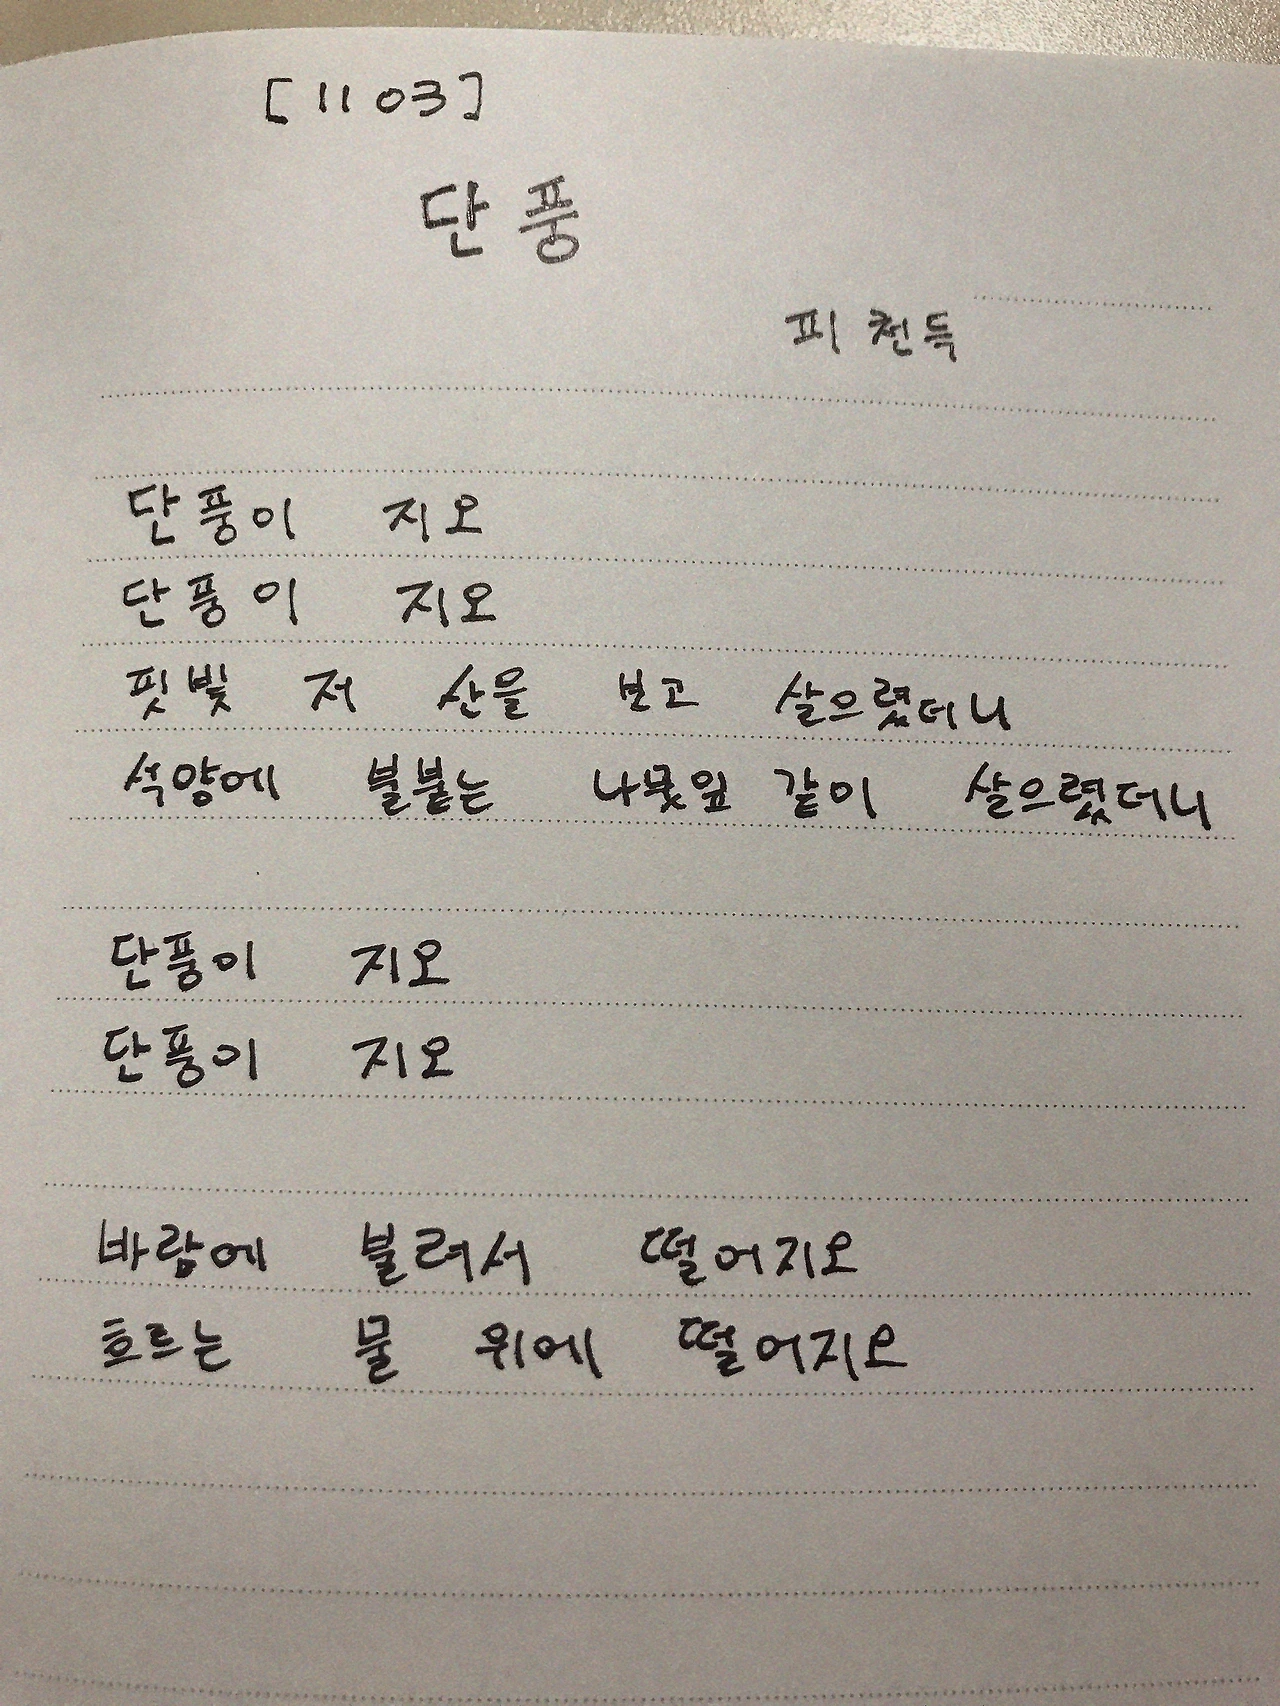 [1103]
단풍
피천득
단풍이 지오
단풍이 지오
핏빛 저 산을 보고 살으렸더니
석양에 불붙는 나뭇잎 같이 살으렸더니
단풍이 지오
단풍이 지오
바람에 불려서 떨어지오
흐르는 물 위에 떨어지오